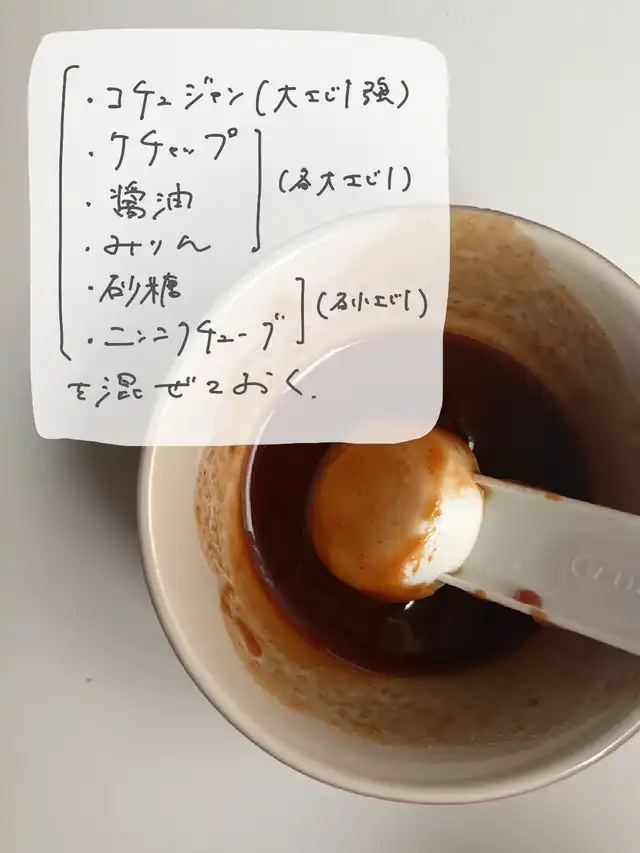 ・コチュジャン(大さじ1強)
・ケチャップ
・醤油
・みりん
(各大さじ1)
・砂糖
・ニンニクチューブ
(各小さじ1)
を混ぜておく.